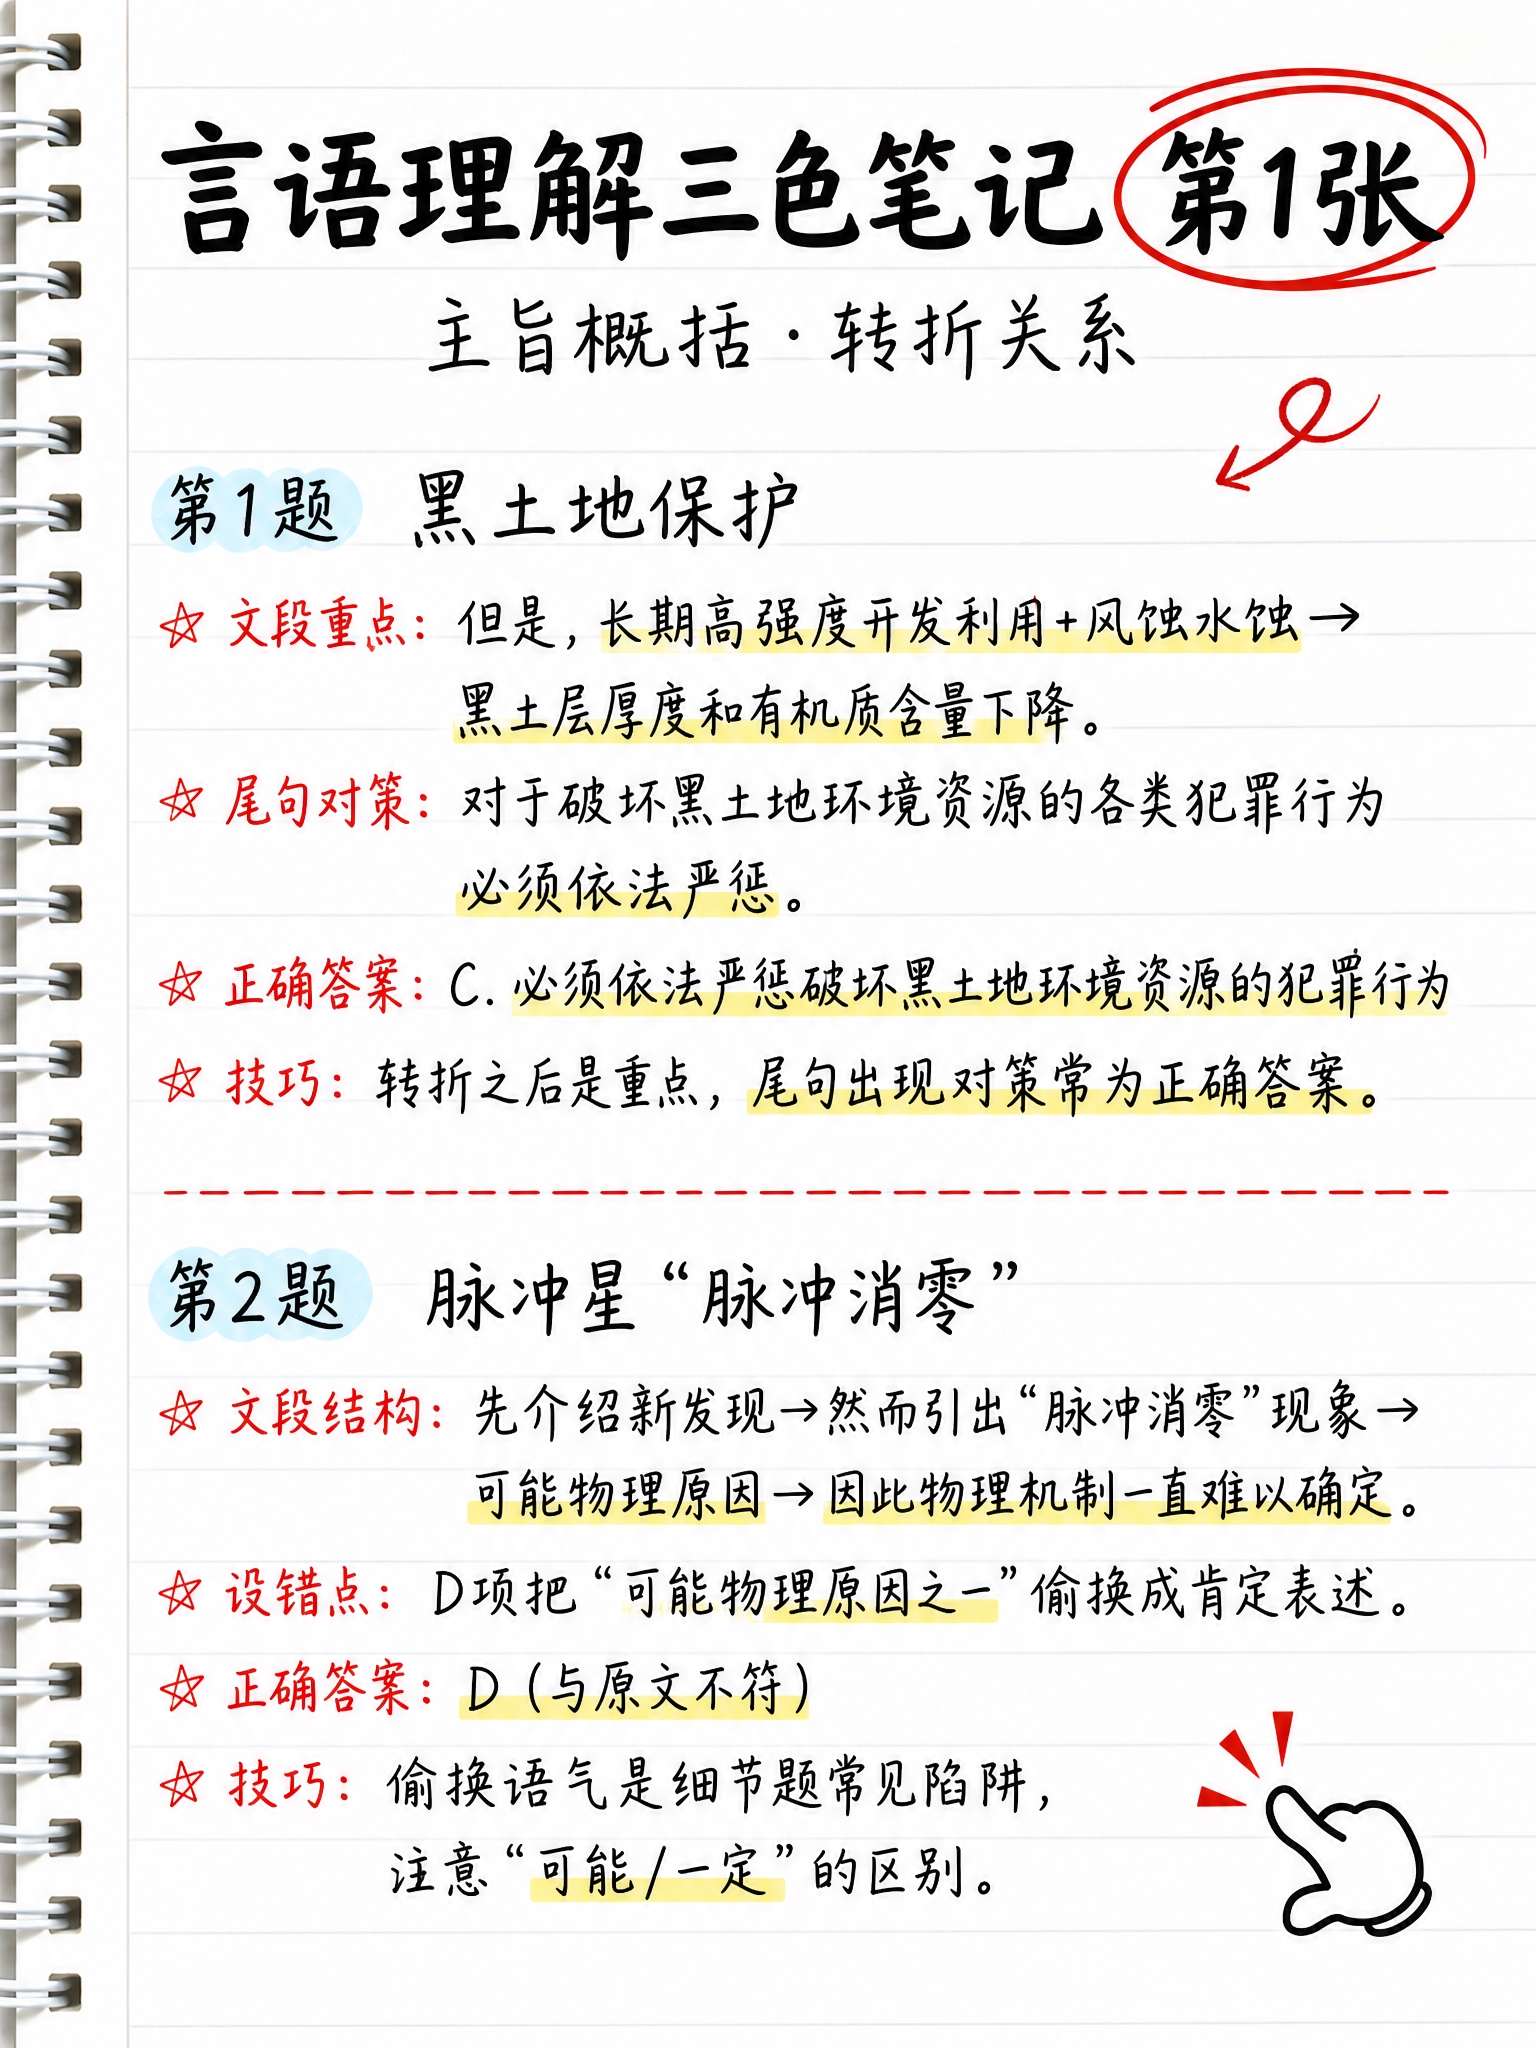 言语理解三色笔记 第1张
主旨概括·转折关系
第1题 黑土地保护
☆ 文段重点：但是，长期高强度开发利用+风蚀水蚀→
黑土层厚度和有机质含量下降。
☆ 尾句对策：对于破坏黑土地环境资源的各类犯罪行为
必须依法严惩。
☆ 正确答案：C. 必须依法严惩破坏黑土地环境资源的犯罪行为
☆ 技巧：转折之后是重点，尾句出现对策常为正确答案。
第2题 脉冲星“脉冲消零”
☆ 文段结构：先介绍新发现→然而引出“脉冲消零”现象→
可能物理原因→因此物理机制一直难以确定。
☆ 设错点：D项把“可能物理原因之一”偷换成肯定表述。
☆ 正确答案：D（与原文不符）
☆ 技巧：偷换语气是细节题常见陷阱，
注意“可能/一定”的区别。